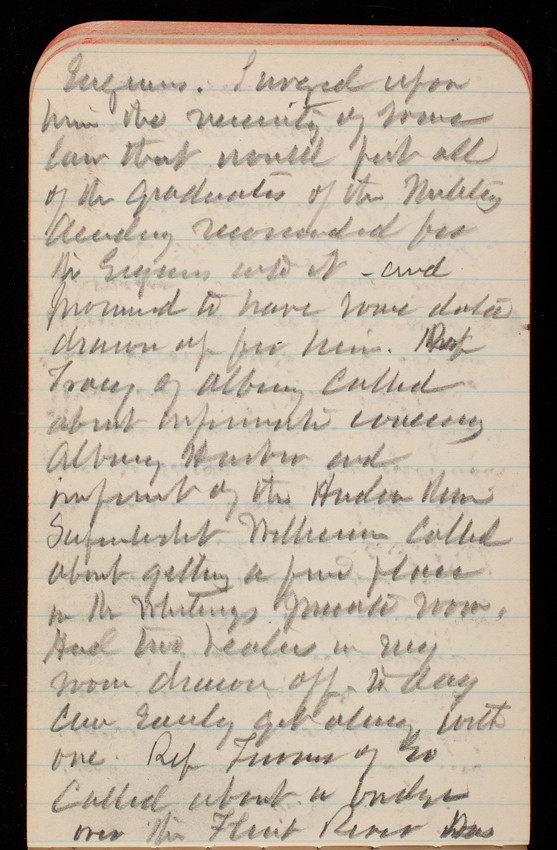 Engineers. I urged upon
him the necessity of some
law that would put all
of the graduates of the Military
Academy recommended for
the Engineers into it - and
promised to have some data
drawn up for him. Rep
Tracy of Albany Called
about information concerning
Albany Harbor and
improvmt of the Hudson River
Superintendt Williams Called
about getting a fire place
in the Whitings private room.
Had two heaters in my
room drawn off. to day
Can easily get along with
one. Rep Turner of Ga
Called about a bridge
over the Flint River Was